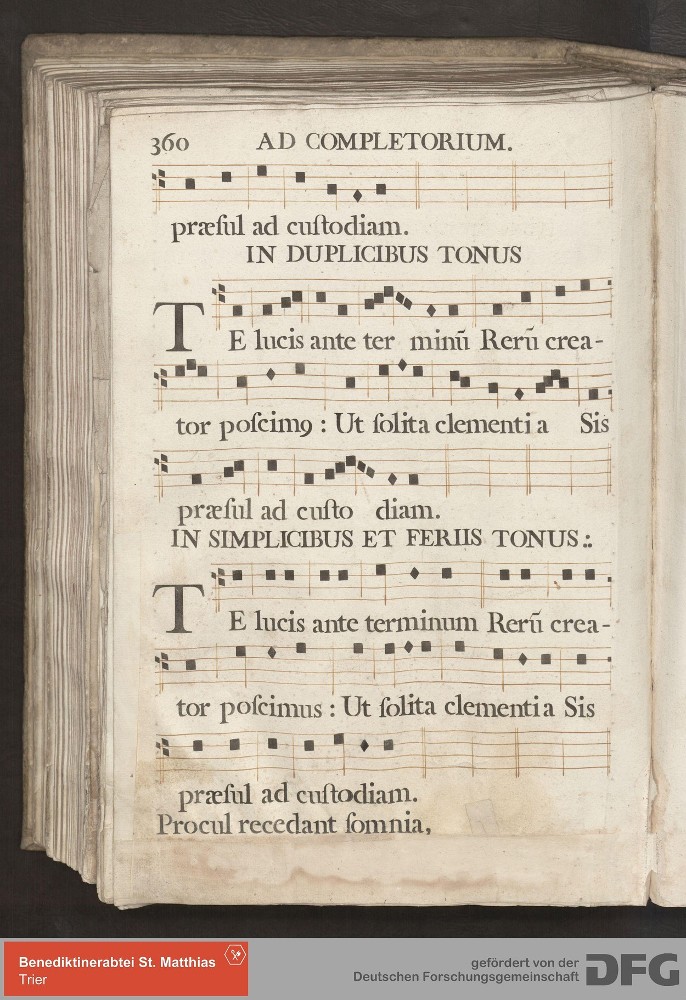 360 AD COMPLETORIUM.
præſul ad cuſtodiam.
IN DUPLICIBUS TONUS
TE lucis ante ter minū Rerū crea-
tor poſcimꝰ : Ut ſolita clementi a Sis
præſul ad cuſto diam.
IN SIMPLICIBUS ET FERIIS TONUS:.
TE lucis ante terminum Rerū crea-
tor poſcimus : Ut ſolita clementi a Sis
præſul ad cuſtodiam.
Procul recedant ſomnia,
Benediktinerabtei St. Matthias
Trier
gefördert von der
Deutschen Forschungsgemeinschaft DFG